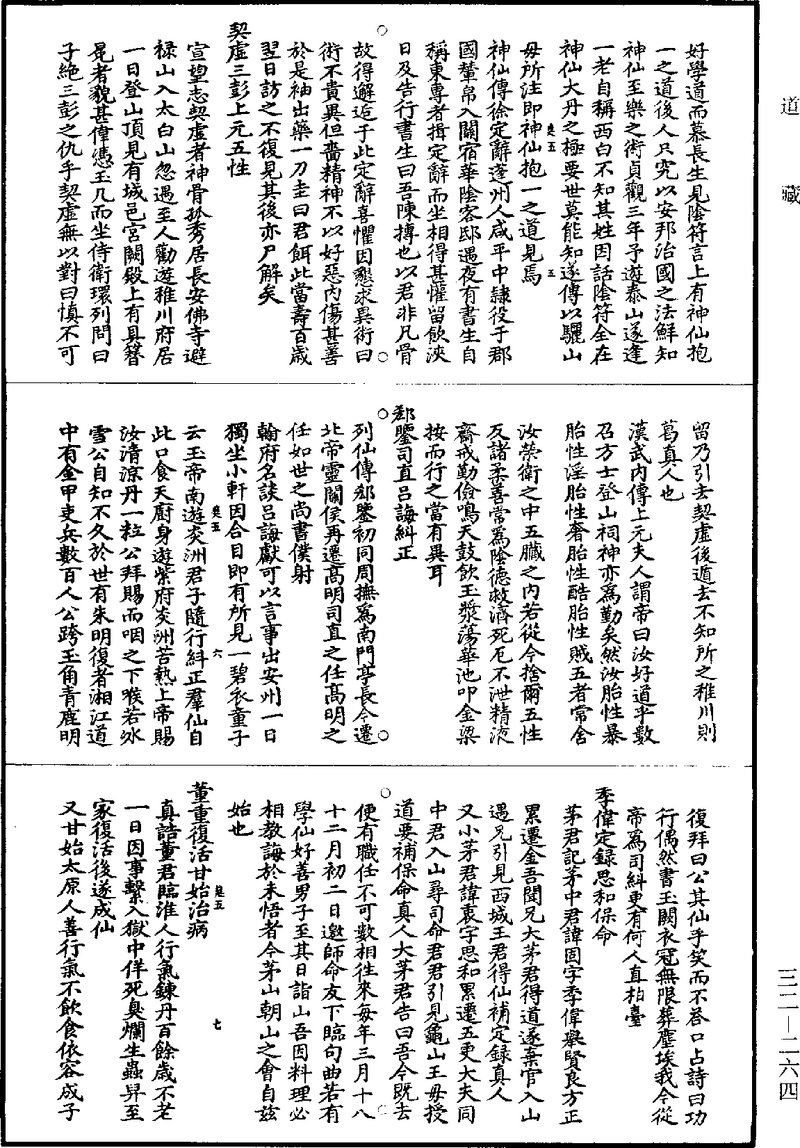 道藏
好學道而慕長生見陰符言上有神仙抱
一之道後人只究以安邦治國之法鮮知
神仙至樂之術貞觀三年予遊泰山遂逢
一老自稱西白不知其姓因話陰符全在
神仙大丹之極要世莫能知遂傳以驪山
母所注即神仙抱一之道見焉
神仙傳徐定辭蓬州人咸平中隷役于郡
國輦帛入關宿華陰客邸遇夜有書生自
稱東専者揖定辭而坐相得甚懽留飲浹
日及告行書生曰吾陳摶也以君非凡骨
故得邂逅于此定辭喜懼因懇求異術曰
術不貴異但嗇精神不以好惡內傷甚善
於是袖出藥一刀圭曰君餌此當壽百歲
翌日訪之不復見其後亦尸解矣
契虛三彭上元五性
宣室志契虛者神骨孤秀居長安佛寺避
祿山入太白山忽遇至人勸遊稚川府居
一日登山頂見有城邑宮闕殿上有具簪
冕者貌甚偉憑玉几而坐侍衛環列問曰
子絶三彭之仇乎契虛無以對曰慎不可
留乃引去契虛後遁去不知所之稚川則
葛真人也
漢武內傳上元夫人謂帝曰汝好道乎數
召方士登山祠神亦為勤矣然汝胎性暴
胎性淫胎性奢胎性酷胎性賊五者常舍
汝榮衛之中五臟之內若從今捨爾五性
反諸柔善常爲陰德救濟死厄不泄精液
齋戒勤儉鳴天鼓飲玉漿蕩華池叩金梁
按而行之當有異耳
郄鑒司直呂誨糾正
列仙傳郄鑒初同周撫爲南門亭長今遷
北帝靈關侯再遷高明司直之任高明之
任如世之尚書僕射
翰府名談呂誨獻可以言事出安州一日
獨坐小軒因合目即有所見一碧衣童子
云玉帝南遊炎洲君子隨行糾正羣仙自
此口食天廚身遊紫府炎洲苦熱上帝賜
汝清涼丹一粒公拜賜而咽之下喉若氷
雪公自知不久於世有朱明復者湘江道
中有金甲吏兵數百人公跨玉角青鹿明
復拜曰公其仙乎笑而不荅口占詩曰功
行偶然書玉闕衣冠無限葬塵埃我今從
帝爲司糾更有何人直柏臺
季偉定録思和保命
茅君記茅中君諱固字季偉舉賢良方正
累遷金吾聞兄大茅君得道遂棄官入山
遇兄引見西城王君得仙補定録真人
又小茅君諱衷字思和累遷五更大夫同
中君入山尋司命君君引見龜山王母授
道要補保命真人大茅君告曰吾今既去
便有職任不可數相往來每年三月十八
十二月初二日邀師命友下臨句曲若有
學仙好善男子至其日詣山吾因料理必
相教誨於未悟者今茅山朝山之會自玆
始也
董重復活甘始治病
真誥董君臨淮人行氣鍊丹百餘歲不老
一日因事繫入獄中佯死臭爛生蟲舁至
家復活後遂成仙
又甘始太原人善行氣不飲食依容成子
三二—二六四